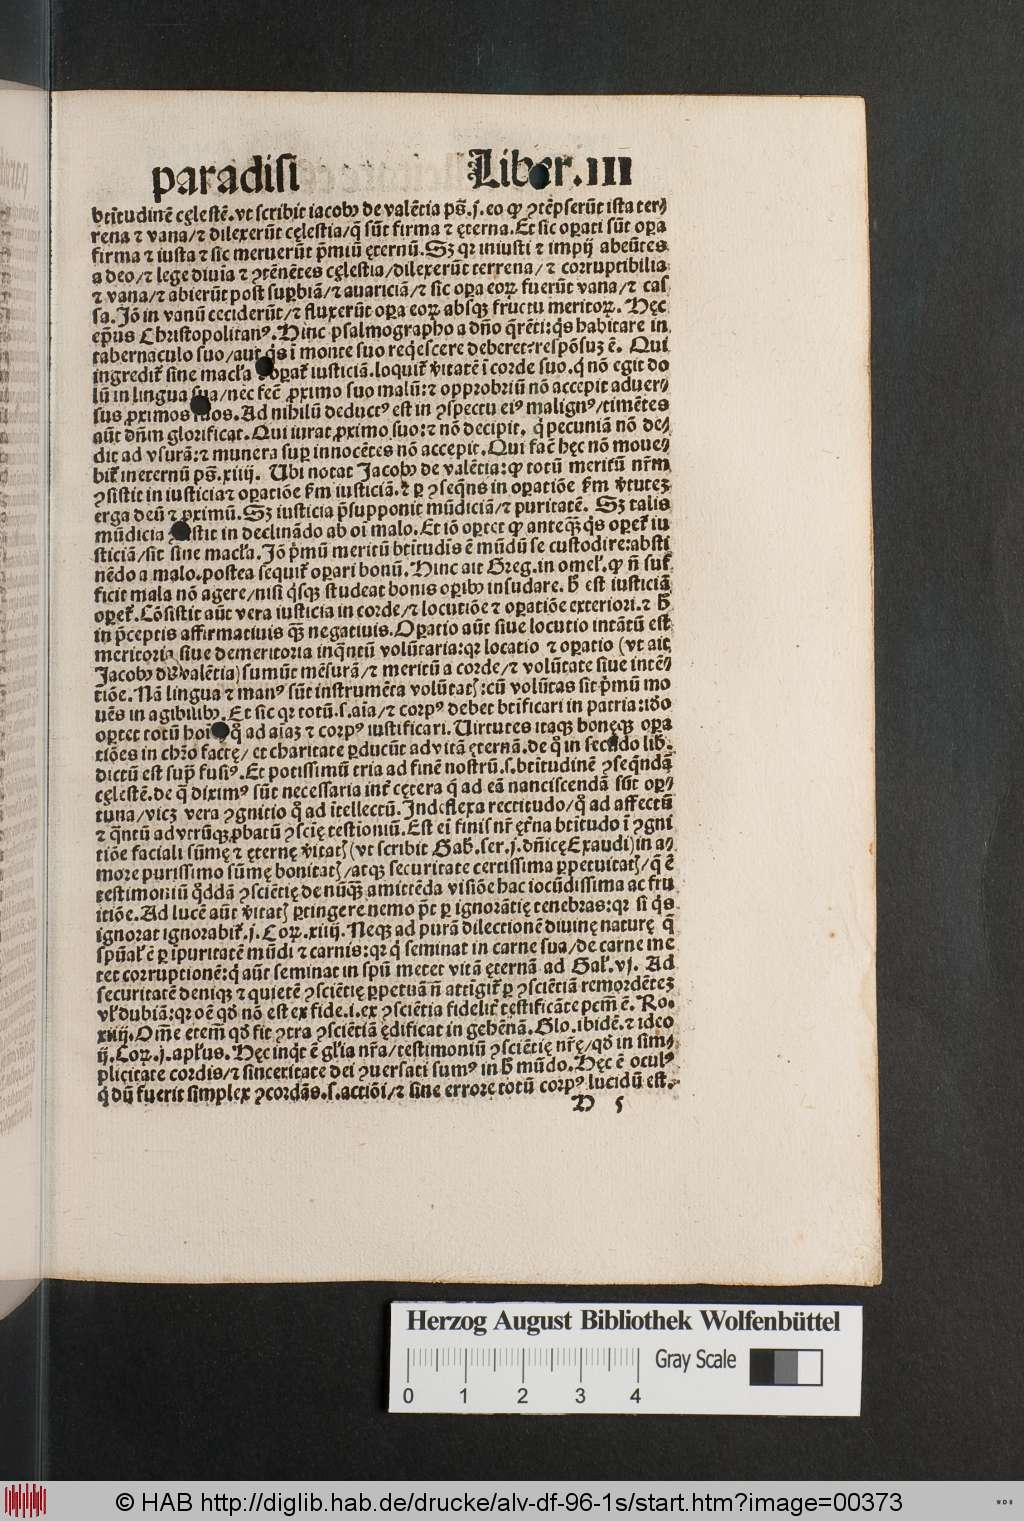 paradisi Liber.III
btĩtudinẽ cęlestẽ.vt scribit iacobꝰ de valẽtia pš.j.eo ꝙ ꝯtẽpserũt ista ter⸗
rena ⁊ vana/⁊ dilexerũt cęlestia/q̃ sũt firma ⁊ ęterna.Et sic oꝑati sũt oꝑa
firma ⁊ iusta ⁊ sic meruerũt p̃miũ ęternũ.Sꝫ qꝛ iniusti ⁊ impij abeũtes
a deo/⁊ lege diuĩa ⁊ ꝯtẽnẽtes cęlestia/dilexerũt terrena/⁊ corruptibilia
⁊ vana/⁊ abierũt post suꝑbiã/⁊ auariciã/⁊ sic oꝑa eoꝝ fuerũt vana/⁊ cas
sa.Iõ in vanũ ceciderũt/⁊ fluxerũt oꝑa eoꝝ absqꝫ fructu meritoꝝ. Hęc
ep̃us Christopolitanꝰ.Hinc psalmographo a dño q̃rẽti:q̇s habitare in
tabernaculo suo/aut q̇s ĩ monte suo req̇escere deberet?respõsuꝫ ẽ. Qui
ingredit̃ sine macl̃a oꝑat̃ iusticiã.loquit̃ ṽitatẽ ĩ corde suo.q̇ nõ egit do
lũ in lingua sua/nec fec̃ ꝓximo suo malũ:⁊ opprobriũ nõ accepit aduer⸗
sus ꝓximos suos.Ad nihilũ deductꝰ est in ꝯspectu eiꝰ malignꝰ/timẽtes
aũt dñm glorificat.Qui iurat ꝓximo suo:⁊ nõ decipit. q̇ pecuniã nõ de⸗
dit ad vsurã:⁊ munera suꝑ innocẽtes nõ accepit.Qui fac̃ hęc nõ moue⸗
bit̃ ineternũ pš.xiiij. Ubi notat Jacobꝰ de valẽtia:ꝙ totũ meritũ nr̃m
ꝯsistit in iusticia⁊ oꝑatiõe ẜm iusticiã.⁊ ꝑ ꝯseq̃ns in oꝑatiõe ẜm ṽtuteꝫ
erga deũ ⁊ ꝓximũ.Sꝫ iusticia p̃supponit mũdiciã/⁊ puritatẽ. Sꝫ talis
mũdicia ꝯsistit in declinãdo ab oĩ malo.Et iõ oꝑtet ꝙ anteq̃ꝫ q̇s oꝑet̃ iu
sticiã/sit sine macl̃a.Iõ p̃mũ meritũ btĩtudis̃ ẽ mũdũ se custodire:absti
nẽdo a malo.postea sequit̃ oꝑari bonũ.Hinc ait Greg.in omel̃.ꝙ ñ suf̃
ficit mala nõ agere/nisi q̇sqꝫ studeat bonis oꝑibꝰ insudare. h̃ est iusticiã
oꝑet̃.Cõsistit aũt vera iusticia in corde/⁊ locutiõe ⁊ oꝑatiõe exteriori.⁊ h̃
in p̃ceptis affirmatiuis q̃ꝫ negatiuis.Oꝑatio aũt siue locutio intãtũ est
meritoria siue demeritoria inq̃ntũ volũtaria:qꝛ locatio ⁊ oꝑatio (vt ait
Jacobꝰ de valẽtia) sumũt mẽsurã/⁊ meritũ a corde/⁊ volũtate siue intẽ⸗
tiõe.Nã lingua ⁊ manꝰ sũt instrumẽta volũtatꝭ:cũ volũtas sit p̃mũ mo
uẽs in agibilibꝰ.Et sic qꝛ totũ.s.aĩa/⁊ corpꝰ debet btificari in patria:iõo
oꝑtet totũ hoĩ q̊ ad aĩaꝫ ⁊ corpꝰ iustificari.Uirtutes itaqꝫ bonęqꝫ oꝑa
tiões in chr̃o factę/et charitate ꝑducũt ad vitã ęternã.de q̊ in secũdo lib̃.
dictũ est sup̃ fusiꝰ.Et potissimũ tria ad finẽ nostrũ.s.btĩtudinẽ ꝯseq̃ndã
cęlestẽ.de q̃ diximꝰ sũt necessaria int̃ cętera q̃ ad eã nanciscendã sũt opꝛ⸗
tuna/vicꝫ vera ꝯgnitio q̊ ad ĩtellectũ.Indeflexa rectitudo/q̊ ad affectũ
⁊ q̃ntũ ad vtrũqꝫ ꝓbatũ ꝯscię testioniũ.Est eĩ finis nr̃ ęt̃na btĩtudo ĩ ꝯgni
tiõe faciali sũmę ⁊ ęternę ṽitatꝭ (vt scribit Gab̃.ser.j.dñicę Exaudi)in a⸗
more purissimo sũmę bonitatꝭ/atqꝫ securitate certissima ꝑpetuitatꝭ/q̃ ẽ
testimoniũ q̊ddã ꝯsciẽtię de nũq̃ꝫ amittẽda visiõe hac iocũdissima ac fru
itiõe.Ad lucẽ aũt ṽitatꝭ ꝑtingere nemo p̃t ꝑ ignorãtię tenebras:qꝛ si q̇s
ignorat ignorabit̃.j.Coꝝ.xiiij.Neqꝫ ad purã dilectionẽ diuinę naturę q̃
sp̃ual̃ ẽ ꝑ ĩpuritatẽ mũdi ⁊ carnis:qꝛ q̇ seminat in carne sua/de carne me
tet corruptionẽ:q̇ aũt seminat in sp̃u metet vitã ęternã ad Gal̃.vj. Ad
securitatẽ deniqꝫ ⁊ quietẽ ꝯsciẽtię ꝑpetuã ñ attĩgit̃ ꝑ ꝯsciẽtiã remordẽteꝫ
vl̃ dubiã:qꝛ oẽ qḋ nõ est ex fide.i.ex ꝯsciẽtia fidelit̃ testificãte pctm̃ ẽ. Ro.
xiiij.Om̃e etem̃ qḋ fit ꝯtra ꝯsciẽtiã ędificat in gehẽnã.Glo.ibidẽ.⁊ ideo
ij.Coꝝ.j.apl̃us.Hęc inq̇t ẽ gl̃ia nr̃a/testimoniũ ꝯsciẽtię nr̃ę/qḋ in sim⸗
plicitate cordis/⁊ sinceritate dei ꝯuersati sumꝰ in h̃ mũdo.Hęc ẽ oculꝰ
q̇ dũ fuerit simplex ꝯcordãs.s.actiõi/⁊ sine errore totũ corpꝰ lucidũ est.
H 5
Herzog August Bibliothek Wolfenbüttel
Gray Scale
0 1 2 3 4
© HAB http://diglib.hab.de/drucke/alv-df-96-1s/start.htm?image=00373